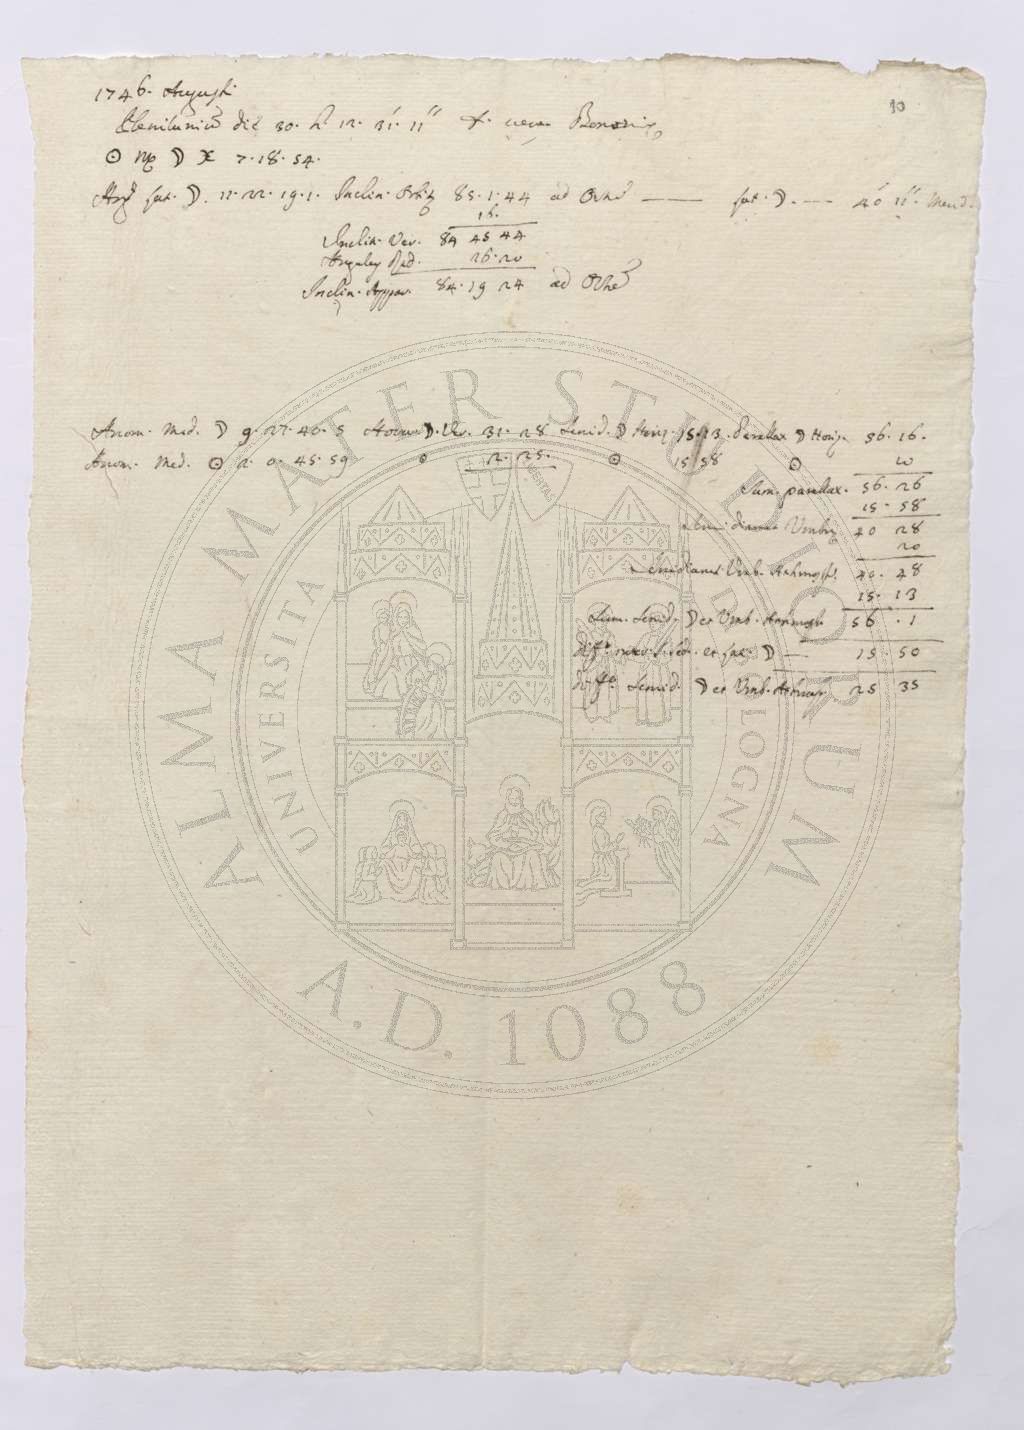 10
1746. Augusti
Plenilunium die 30. h. 12. 31' 11" t. vero Bononiæ
☉ ♍ ☽ ♓ 7. 18. 54.
Arg. Lat. ☽. 11. 22. 19. 1. Inclin. Orbitæ 85. 1. 44 ad Orte — Lat. ☽. — 40' 11" Merid.
16.
Inclin. Ver. 84 45 44
Angulus Rad. 26. 20
Inclin. Appar. 84. 19 24 ad Orte
Anom. Med. ☽ 9. 27. 46. 5 Horar. ☽. Ver. 31. 28 Semid. ☽ Horiz. 15. 13. Parallax ☽ Horiz. 56. 16.
Anom. Med. ☉ 2. 0. 45. 59 ☉ 2. 25. ☉ 15 58 ☉ 10
Sum. parallax. 56. 26
15. 58
Semidiamet. Umbræ 40 28
20
Semidiamet. Umb. Atmosph. 40. 48
15. 13
Sum. Semid. ☽ et Umb. Atmosph. 56. 1
diff. inter S. sed. et Lat. ☽ — 15. 50
diff. Semid. ☽ et Umb. Atmosp. 25 35
ALMA MATER STUDIORUM
UNIVERSITA DI BOLOGNA
LIBERTAS
A.D. 1088